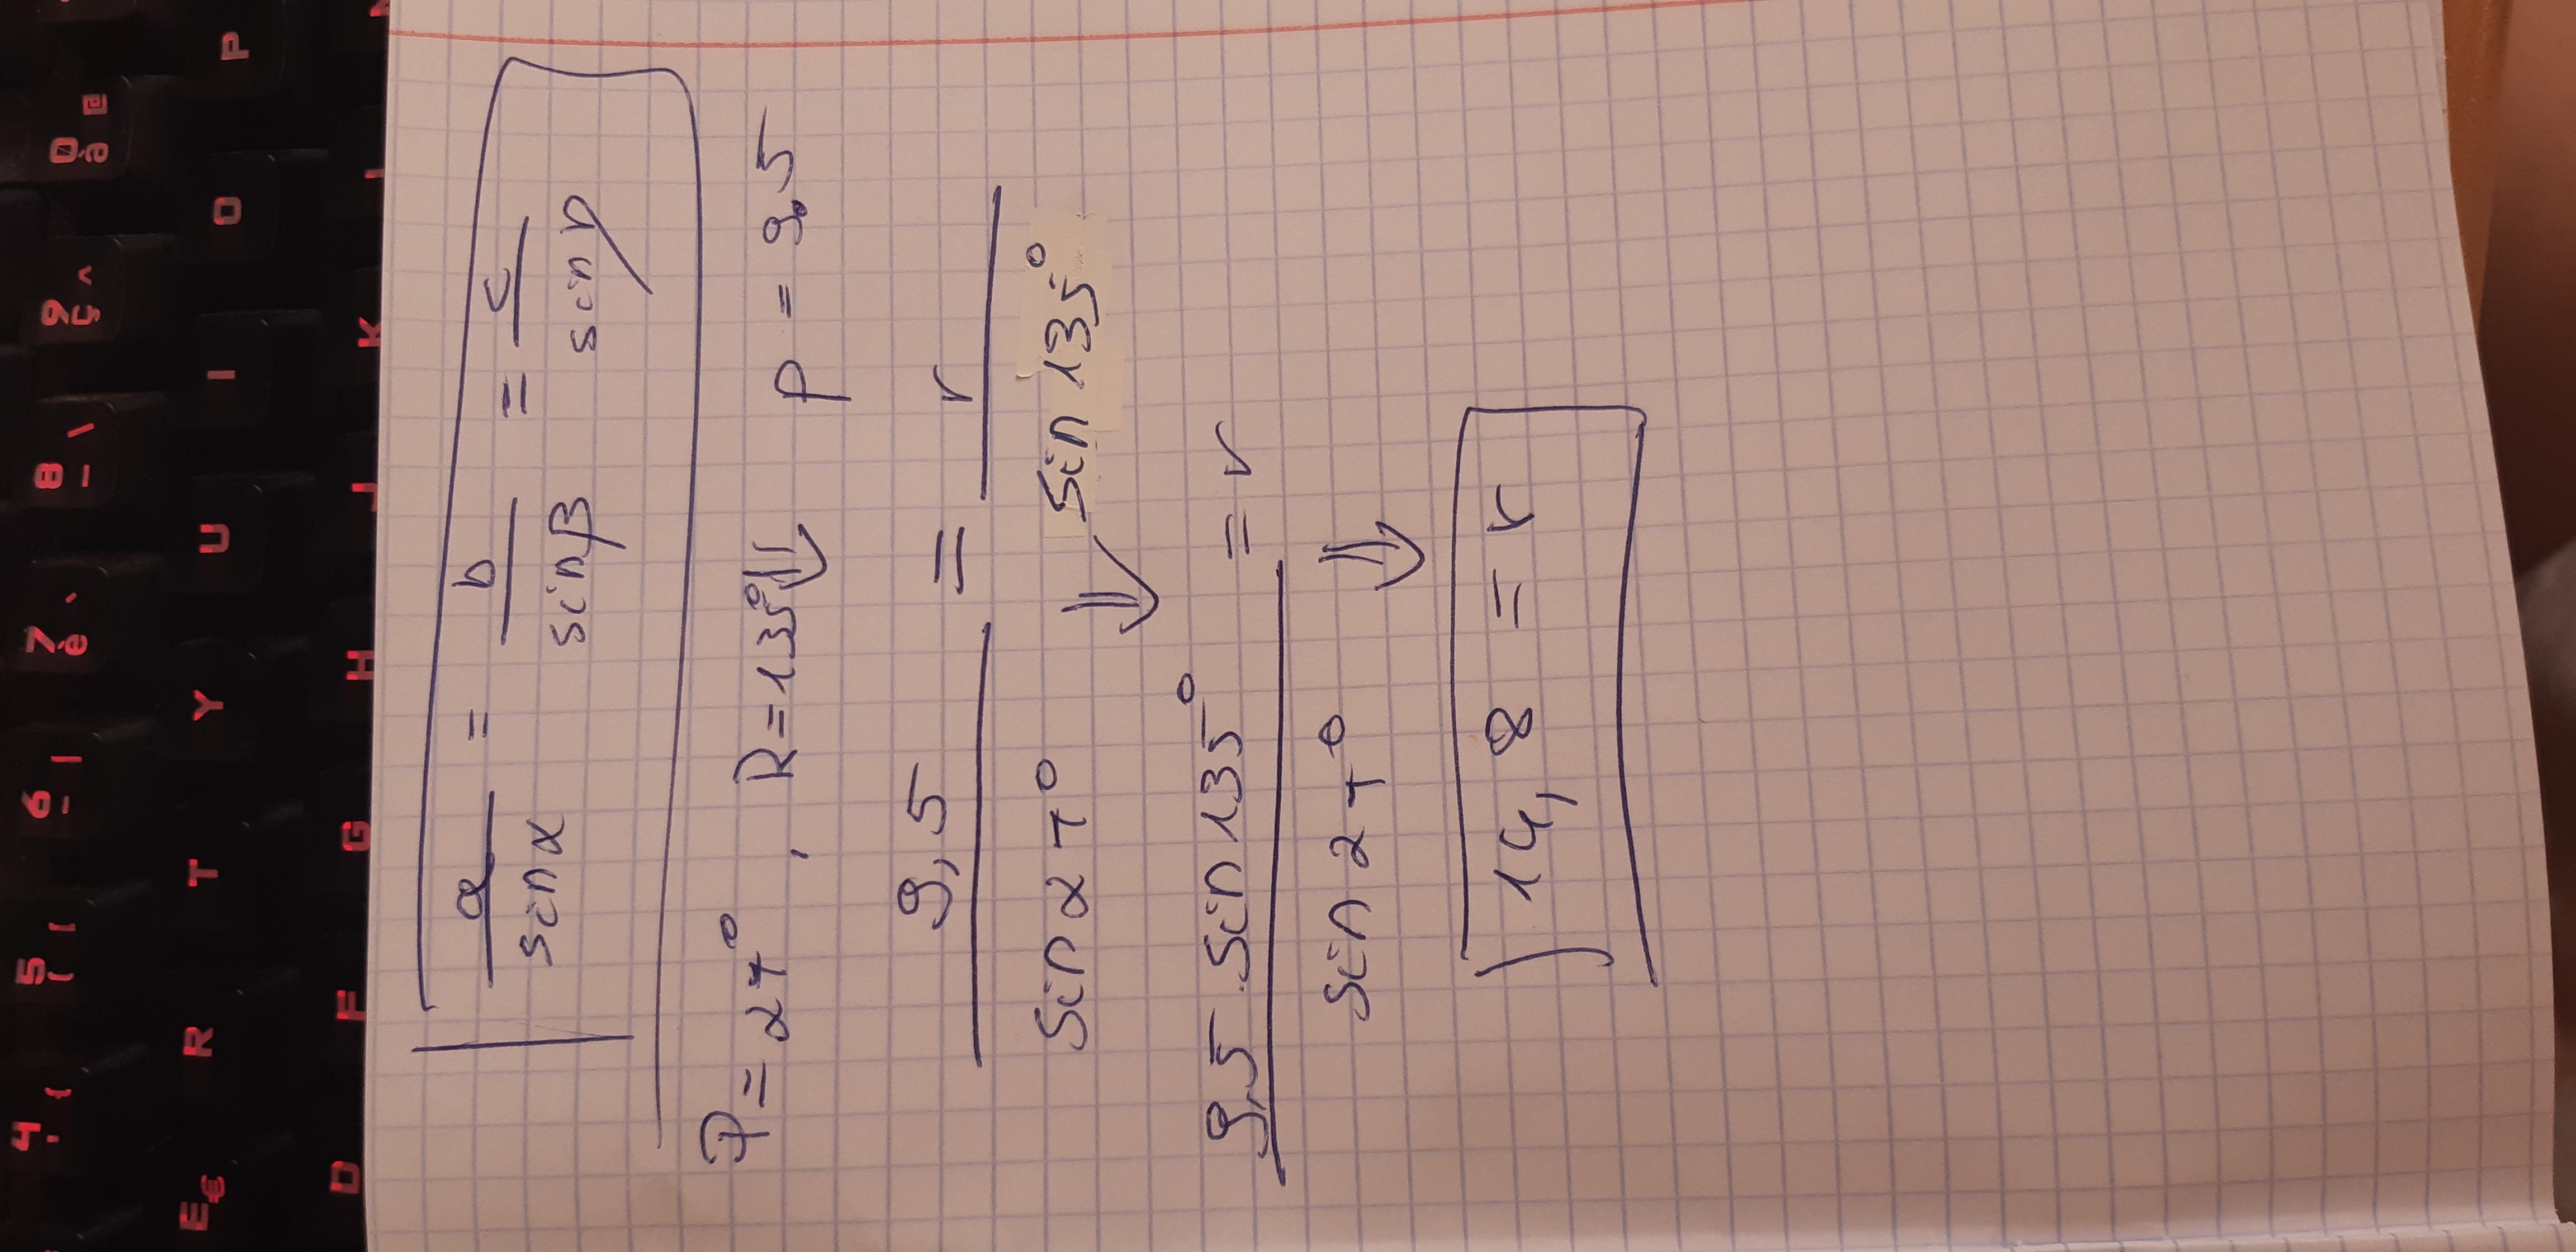 a = b = c
sinα sinβ sinγ
P = 27° , R = 135° p = 9.5
⇓
9,5 = r
sin 27° sin 135°
⇓
9,5 . sin 135° = r
sin 27°
⇓
14,8 = r
4 ' {
5 ( [
6 - |
7 è `
8 _ \
9 ç ^
0 à @
E €
R
T
Y
U
I
O
P
D
F
G
H
J
K